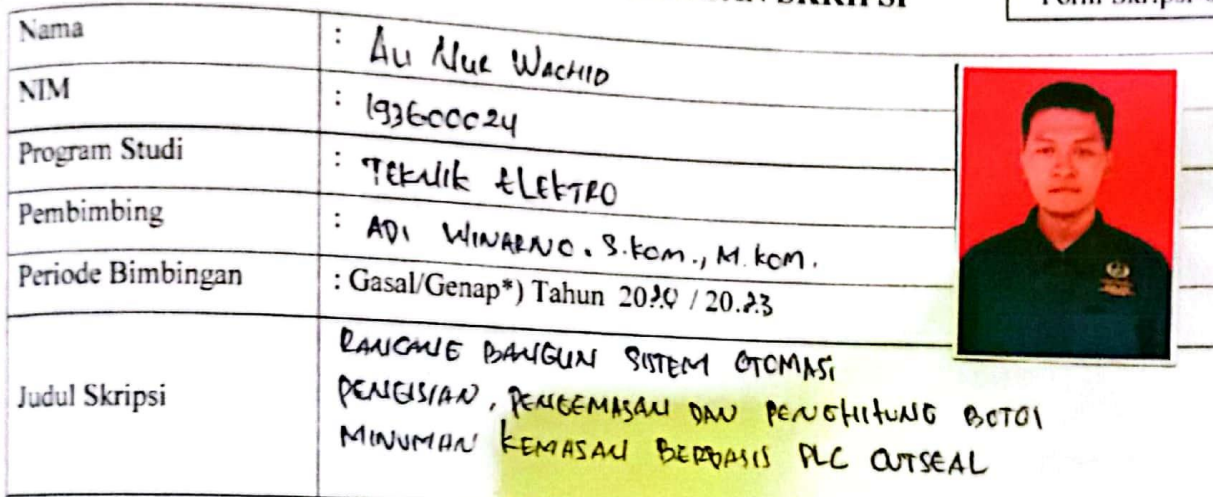 SKRIPSI
Form Skripsi
Nama : Ali Nur Wachid
NIM : 193600024
Program Studi : TEKNIK ELEKTRO
Pembimbing : ADI WINARNO. S.kom., M.kom.
Periode Bimbingan : Gasal/Genap*) Tahun / 20.23
Judul Skripsi
RANCANG BANGUN SISTEM OTOMASI
PENGISIAN, PENGEMASAN DAN PENGHITUNG BOTOl
MINUMAN KEMASAN BERBASIS PLC OUTSEAL